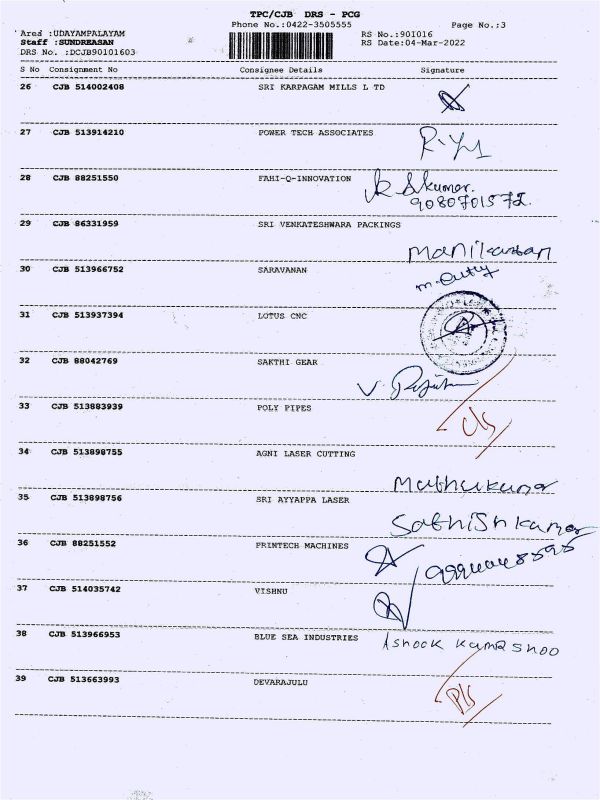 TPC/CJB DRS - PCG
Phone No.:0422-3505555 Page No.:3
Area :UDAYAMPALAYAM RS No.:901016
Staff :SUNDREASAN RS Date:04-Mar-2022
DRS No. :DCJB90101603
S No Consignment No Consignee Details Signature
26 CJB 514002408 SRI KARPAGAM MILLS L TD
27 CJB 513914210 POWER TECH ASSOCIATES
28 CJB 88251550 FAHI-Q-INNOVATION
9080701572.
29 CJB 86331959 SRI VENKATESHWARA PACKINGS
Manikandan
30 CJB 513966752 SARAVANAN
31 CJB 513937394 LOTUS CNC
32 CJB 88042769 SAKTHI GEAR
33 CJB 513883939 POLY PIPES
C/S
34 CJB 513898755 AGNI LASER CUTTING
Muthukumar
35 CJB 513898756 SRI AYYAPPA LASER
Sathish kumar
36 CJB 88251552 PRINTECH MACHINES
37 CJB 514035742 VISHNU
38 CJB 513966953 BLUE SEA INDUSTRIES Ashook
39 CJB 513663993 DEVARAJULU
P/S